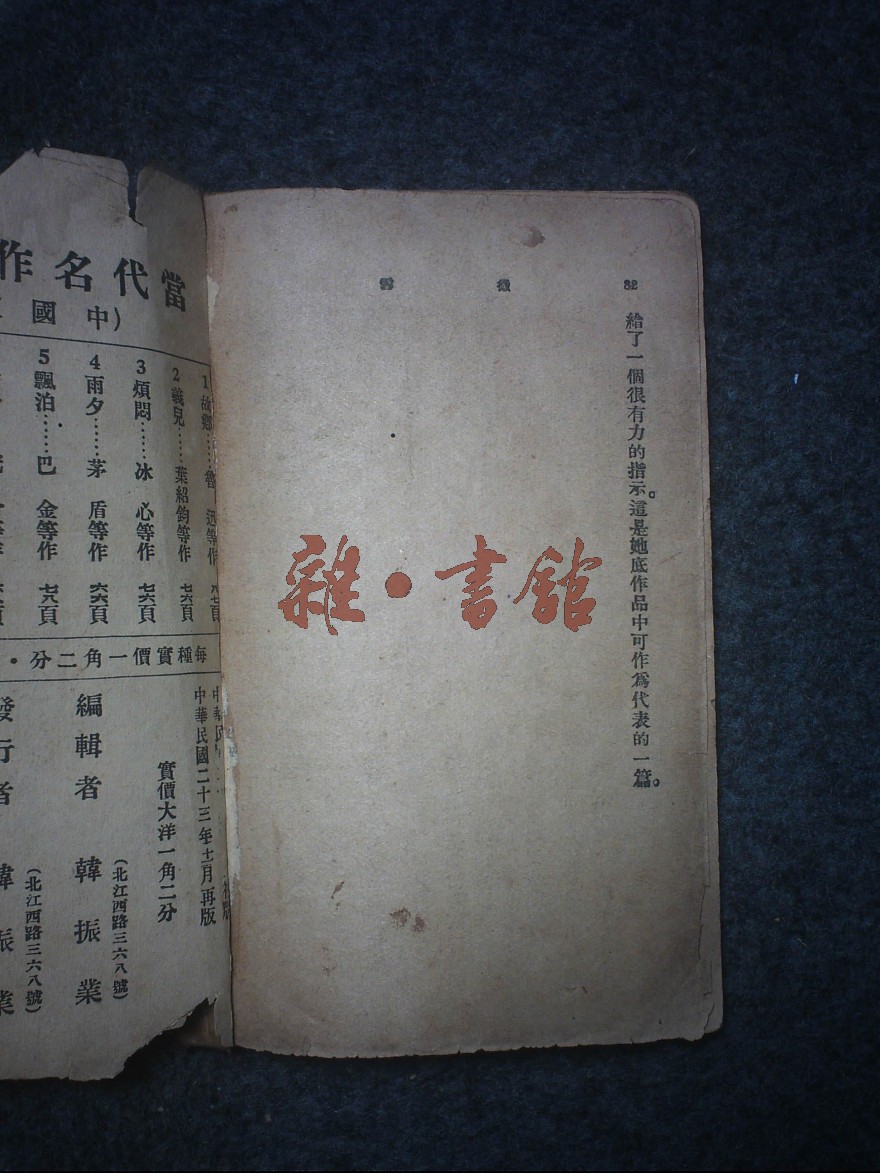 微雪 82
給了一個很有力的指示。這是她底作品中可作爲代表的一篇。
雜·書館
當代名作
(中國
1 故鄉……魯 迅等作
2 義兒……葉紹鈞等作
3 煩悶……冰 心等作
4 雨夕……茅 盾等作
5 飄泊……巴 金等作
每種實價一角二分·
中華民國二十三年十二月再版
實價大洋一角二分
編輯者 韓振業
(北江西路三六八號)
發行者 韓振業
(北江西路三六八號)